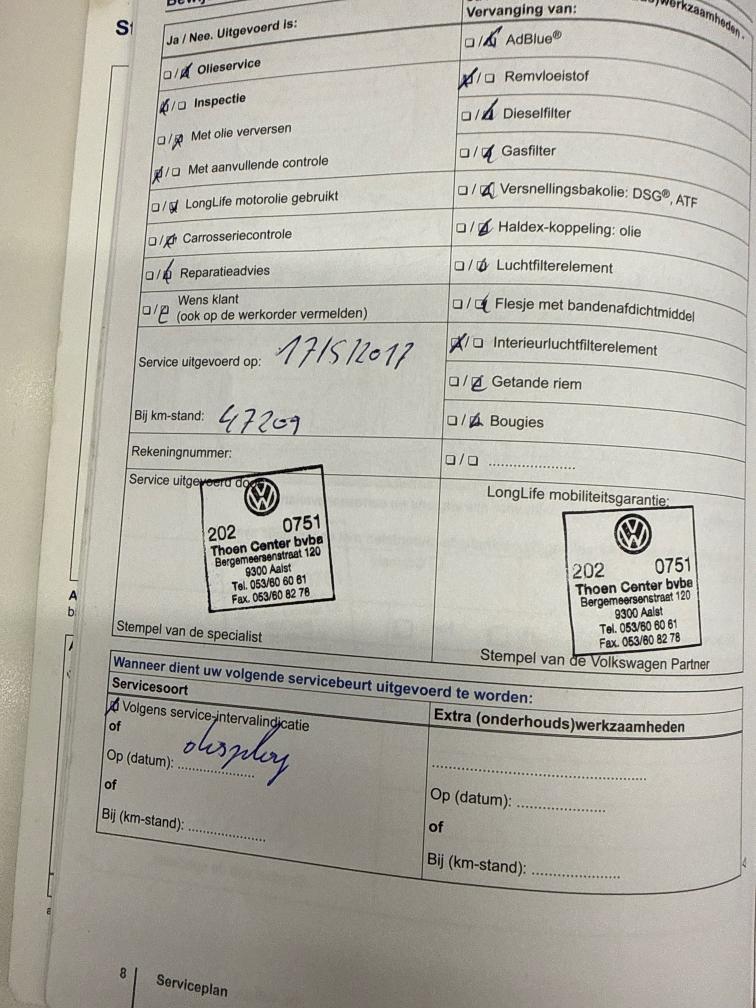 Ja / Nee. Uitgevoerd is:
☐/☒ Olieservice
☒/☐ Inspectie
☐/☒ Met olie verversen
☒/☐ Met aanvullende controle
☐/☒ LongLife motorolie gebruikt
☐/☒ Carrosseriecontrole
☐/☒ Reparatieadvies
☐/☒ Wens klant
(ook op de werkorder vermelden)
Service uitgevoerd op: 17/5/2017
Bij km-stand: 47209
Rekeningnummer:
Service uitgevoerd door
202 0751
Thoen Center bvba
Bergemeersenstraat 120
9300 Aalst
Tel. 053/60 60 61
Fax. 053/60 82 78
Stempel van de specialist
werkzaamheden.
Vervanging van:
☐/☒ AdBlue®
☒/☐ Remvloeistof
☐/☒ Dieselfilter
☐/☒ Gasfilter
☐/☒ Versnellingsbakolie: DSG®, ATF
☐/☒ Haldex-koppeling: olie
☐/☒ Luchtfilterelement
☐/☒ Flesje met bandenafdichtmiddel
☒/☐ Interieurluchtfilterelement
☐/☒ Getande riem
☐/☒ Bougies
☐/☐ ......................
LongLife mobiliteitsgarantie:
202 0751
Thoen Center bvba
Bergemeersenstraat 120
9300 Aalst
Tel. 053/60 60 61
Fax. 053/60 82 78
Stempel van de Volkswagen Partner
Wanneer dient uw volgende servicebeurt uitgevoerd te worden:
Servicesoort
☒ Volgens service-intervalindicatie
of
display
Op (datum): ....................
of
Bij (km-stand): ....................
Extra (onderhouds)werkzaamheden
......................................................
Op (datum): ......................
of
Bij (km-stand): ......................
8 Serviceplan